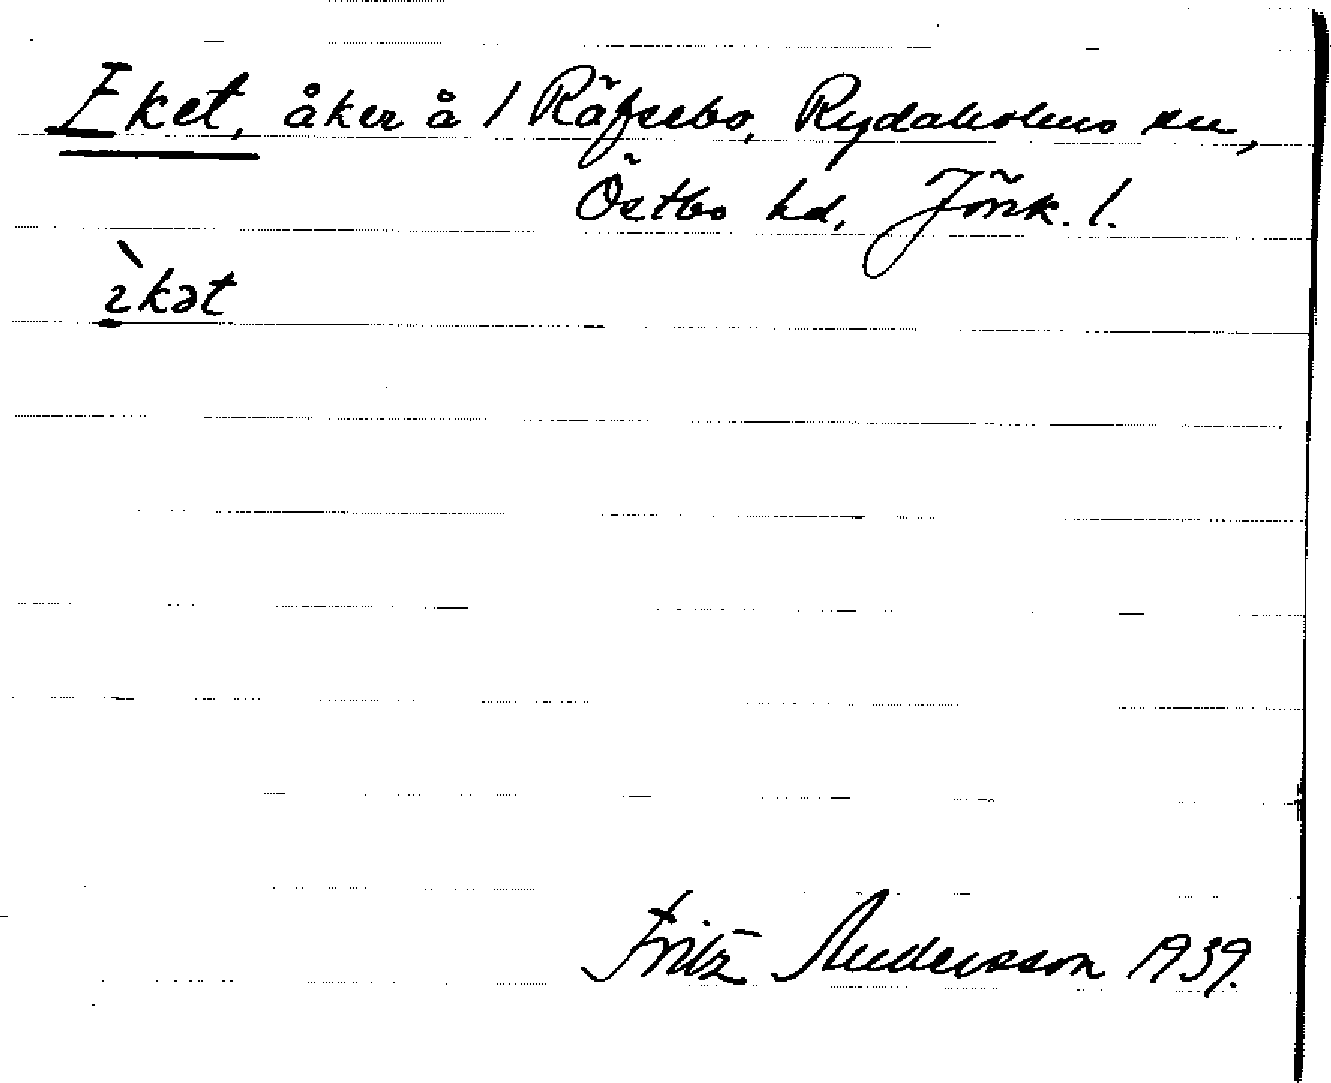 Eket, åker å 1 Räfsebo, Rydaholms sn,
Östbo hd, Jönk. l.
èkət
Fritz Andersson 1939.